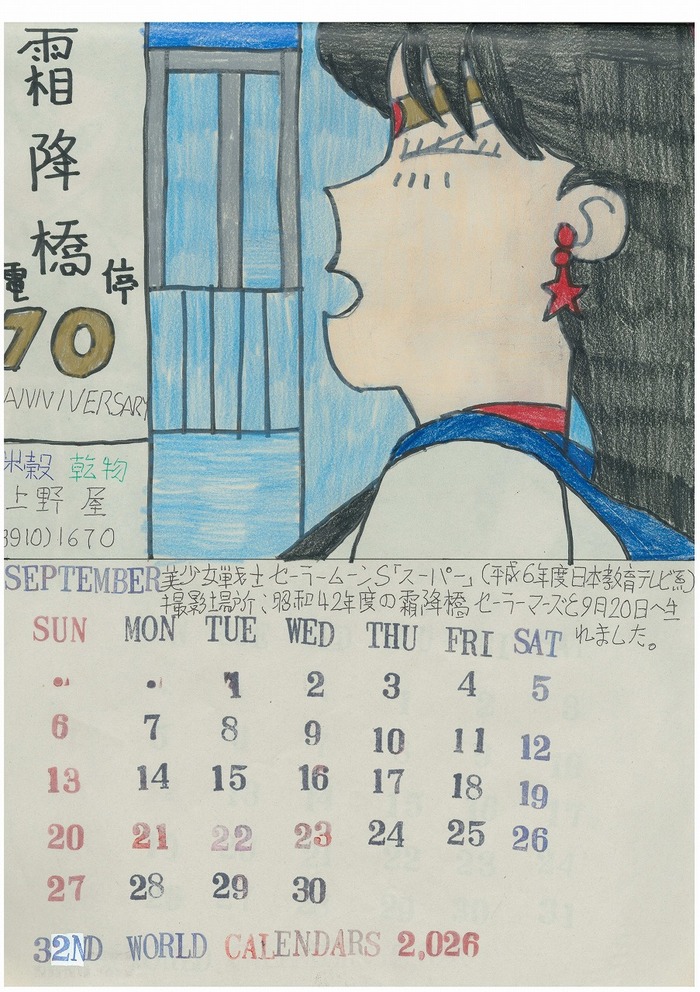 霜降橋
電停
70
ANNIVERSARY
米穀 乾物
上野屋
3910)1670
SEPTEMBER 美少女戦士セーラームーンS「スーパー」(平成6年度日本教育テレビ系)
撮影場所;昭和42年度の霜降橋セーラーマーズと9月20日へ生
れました。
SUN MON TUE WED THU FRI SAT
• • 1 2 3 4 5
6 7 8 9 10 11 12
13 14 15 16 17 18 19
20 21 22 23 24 25 26
27 28 29 30
32ND WORLD CALENDARS 2,026